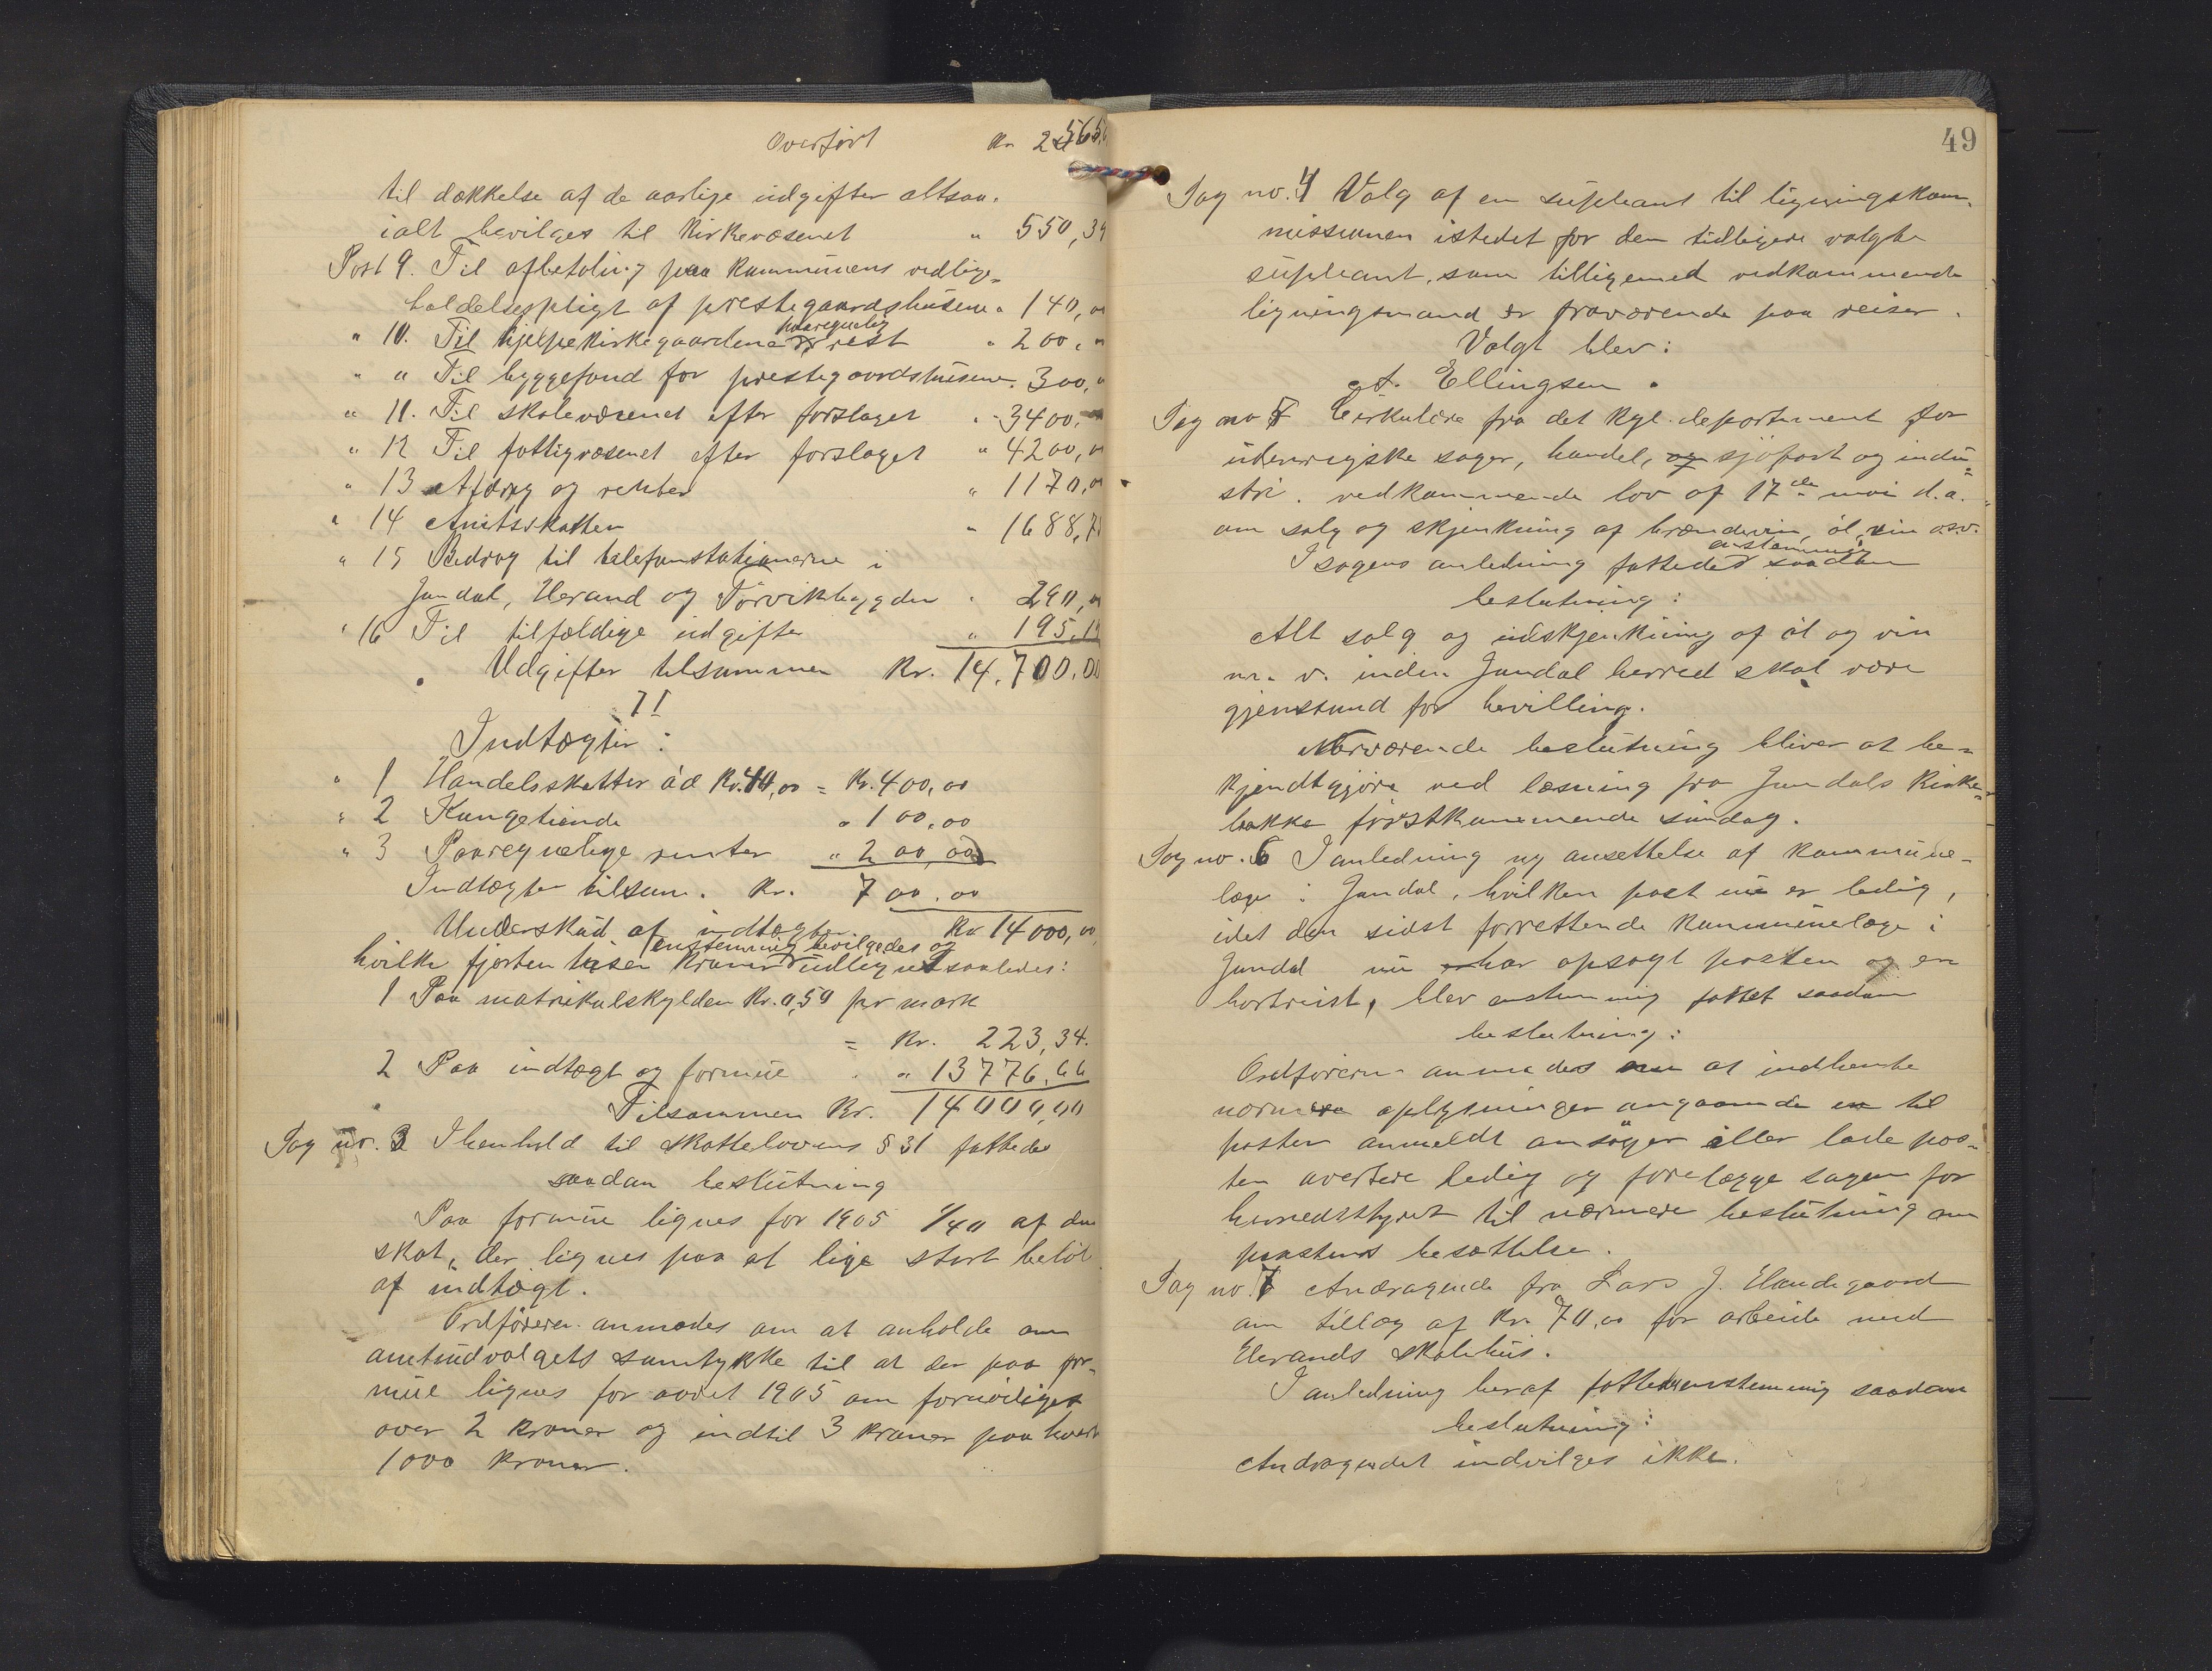 Overført Kr. 2565,
til dækkelse af de aarlige udgifter altsaa.
ialt bevilges til kirkevæsenet " 550,34
Post 9. Til afbetaling paa kommunens vedlige-
holdelsespligt af prestegaardshusene " 140,00
" 10. Til hjelpekirkegaardene paaregnelig rest " 200,"
" " Til byggefond for prestegaardshusene. 300,"
" 11. Til skolevæsenet efter forslaget " 3400,
" 12 Til fattigvæsenet efter forslaget " 4200,00
" 13 Afdrag og renter " 1170,00
" 14 Amtsskatten " 1688,7
" 15 Bidrag til telefonstationerne i
Jondal, Herand og Torvikbygden " 290,00
" 16 Til tilfældige udgifter " 195,1
Udgifter tilsammen Kr. 14.700.00
II
Indtægter:
" 1 Handelsskatter ád Kr. 40,00 = Kr. 400,00
" 2 Kongetiende " 100,00
" 3 Paaregnelige renter " 200,00
Indtægter tilsam. Kr. 700.00
Underskud af indtægter Kr 14000,00
enstemmig bevilgedes og
hvilke fjorten tusen kroner udlignet saaledes:
1 Paa matrikulskylden Kr. 0,50 pr mark
= Kr. 223,34.
2 Paa indtægt og formue " 13776,66
Tilsammen Kr. 14000,00
Sag nr. 3 I henhold til skattelovens § 31 fattedes
saadan beslutning
Paa formue lignes for 1905 1/40 af den
skat, der lignes paa et lige stort beløb
af indtægt.
Ordføreren anmodes om at anholde om
amtsudvalgets samtykke til at der paa for-
mue lignes for aaret 1905 om fornødiget
over 2 kroner og indtil 3 kroner paa hvert
1000 kroner.
49
Sag no. 4 Valg af en supleant til ligningskom-
missionen istedet for den tidligere valgte
supleant, som tilligemed vedkommende
ligningsmand er fraværende paa reiser.
Valgt blev:
Ellingsen.
Sag no 5 Cirkulære fra det kgl. departement for
udenrigske sager, handel, og sjøfart og indu-
stri. vedkommende lov af 17de mai d.a.
om salg og skjenkning af brændevin, øl, vin osv.
enstemmig
I sagens anledning fattedes saadan
beslutning:
Alt salg og udskjenkning af øl og vin
m. v. inden Jondal herred skal være
gjenstand for bevilling.
Nærværende beslutning bliver at be-
kjendtgjøre ved læsning fra Jondals kirke-
bakke førstkommende søndag.
Sag no. 6 I anledning ny ansettelse af kommune-
læge i Jondal, hvilken post nu er ledig,
idet den sidst forrettende kommunelæge i
Jondal nu har opsagt posten og er
bortreist, blev enstemmig fattet saadan
beslutning:
Ordføreren anmodes om at indhente
nærmere oplysninger angaaende en til
posten anmeldt ansøger eller lade pos-
ten avertere ledig og forelægge sagen for
herredsstyret til nærmere beslutning om
postens besættelse.
Sag no. 7 Andragende fra Lars J. Handegaard
om tillæg af Kr. 70,00 for arbeide med
Herands skolehus.
I anledning heraf fattedes enstemmig saadan
beslutning:
Andragendet indvilges ikke.